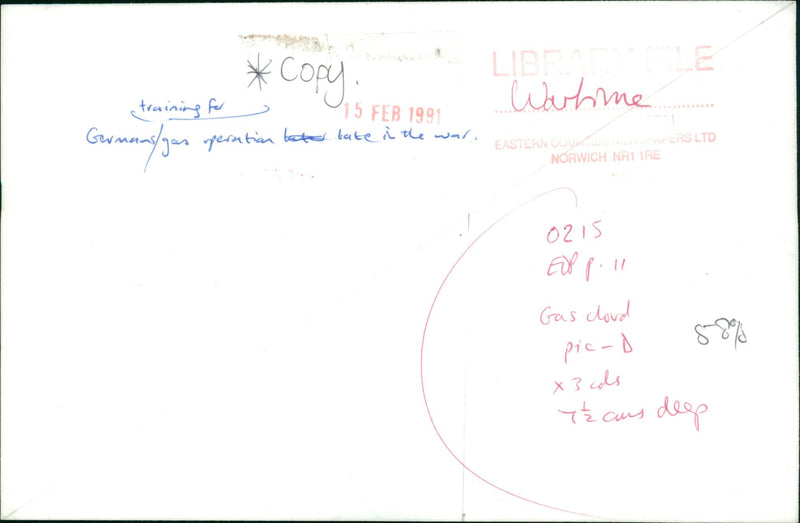 * Copy.
15 FEB 1991
training for
Germans/gas operation late in the war.
LIBRARY FILE
Wartime
EASTERN COUNTIES NEWSPAPERS LTD
NORWICH NR1 1RE
0215
EDP p. 11
Gas cloud
pic - D
x 3 cols
7½ cms deep
58%